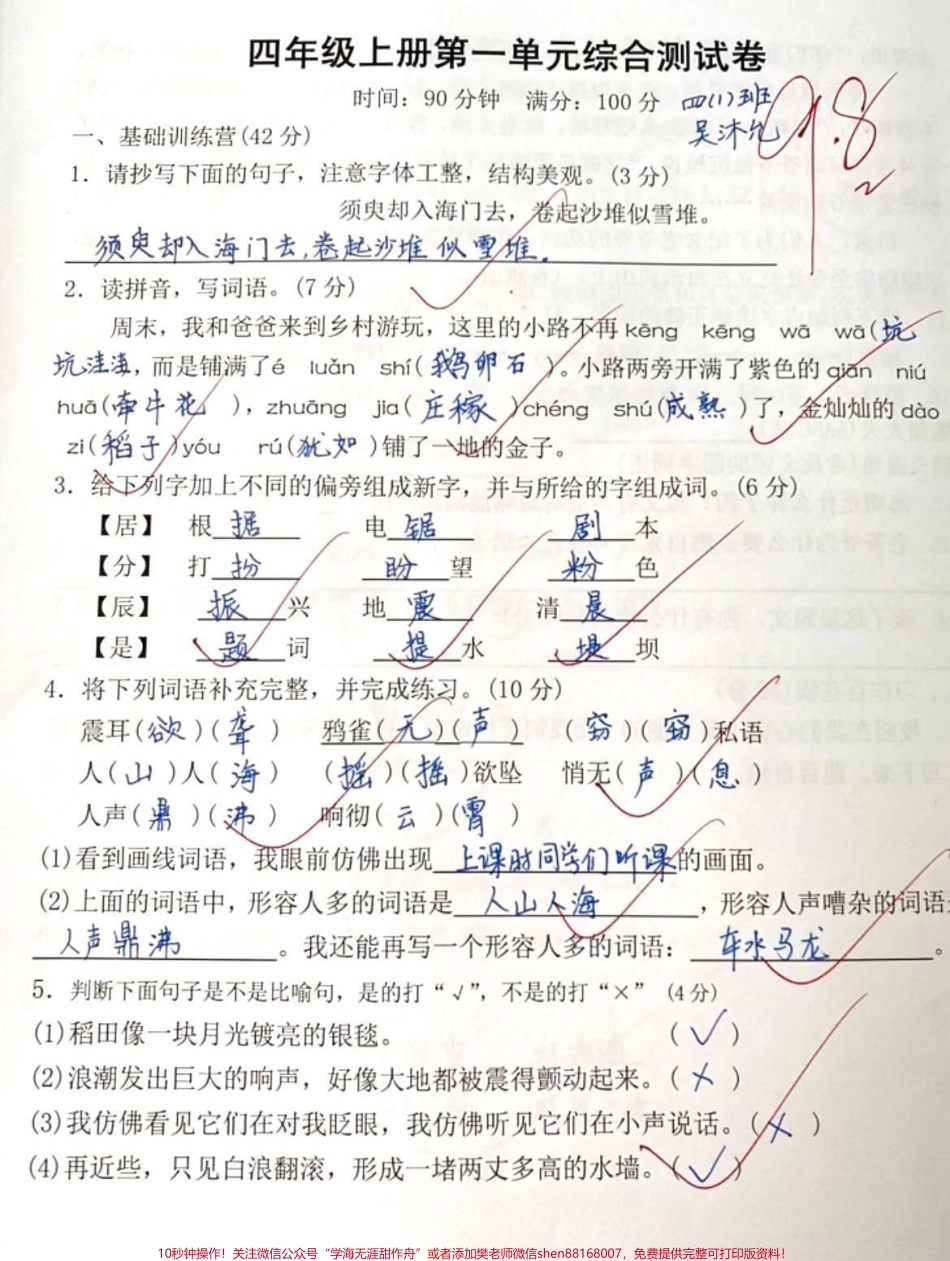 四年级上册第一单元综合测试卷
时间：90分钟 满分：100分 四(1)班
吴沐允 98
一、基础训练营(42分)
1．请抄写下面的句子，注意字体工整，结构美观。(3分)
须臾却入海门去，卷起沙堆似雪堆。
须臾却入海门去，卷起沙堆似雪堆。
2．读拼音，写词语。(7分)
周末，我和爸爸来到乡村游玩，这里的小路不再kēng kēng wā wā(坑
坑洼洼，而是铺满了é luǎn shí(鹅卵石)。小路两旁开满了紫色的qiān niú
huā(牵牛花)，zhuāng jia(庄稼)chéng shú(成熟)了，金灿灿的dào
zi(稻子)yóu rú(犹如)铺了一地的金子。
3．给下列字加上不同的偏旁组成新字，并与所给的字组成词。(6分)
【居】 根据 电锯 剧本
【分】 打扮 盼望 粉色
【辰】 振兴 地震 清晨
【是】 题词 提水 堤坝
4．将下列词语补充完整，并完成练习。(10分)
震耳(欲)(聋) 鸦雀(无)(声) (窃)(窃)私语
人(山)人(海) (摇)(摇)欲坠 悄无(声)(息)
人声(鼎)(沸) 响彻(云)(霄)
(1)看到画线词语，我眼前仿佛出现上课时同学们听课的画面。
(2)上面的词语中，形容人多的词语是人山人海，形容人声嘈杂的词语是
人声鼎沸。我还能再写一个形容人多的词语：车水马龙。
5．判断下面句子是不是比喻句，是的打“√”，不是的打“×” (4分)
(1)稻田像一块月光镀亮的银毯。 (√)
(2)浪潮发出巨大的响声，好像大地都被震得颤动起来。(×)
(3)我仿佛看见它们在对我眨眼，我仿佛听见它们在小声说话。(×)
(4)再近些，只见白浪翻滚，形成一堵两丈多高的水墙。(√)
10秒钟操作！关注微信公众号“学海无涯甜作舟”或者添加樊老师微信shen88168007，免费提供完整可打印版资料！